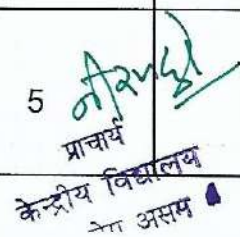 5
प्राचार्य
केन्द्रीय विद्यालय
असम